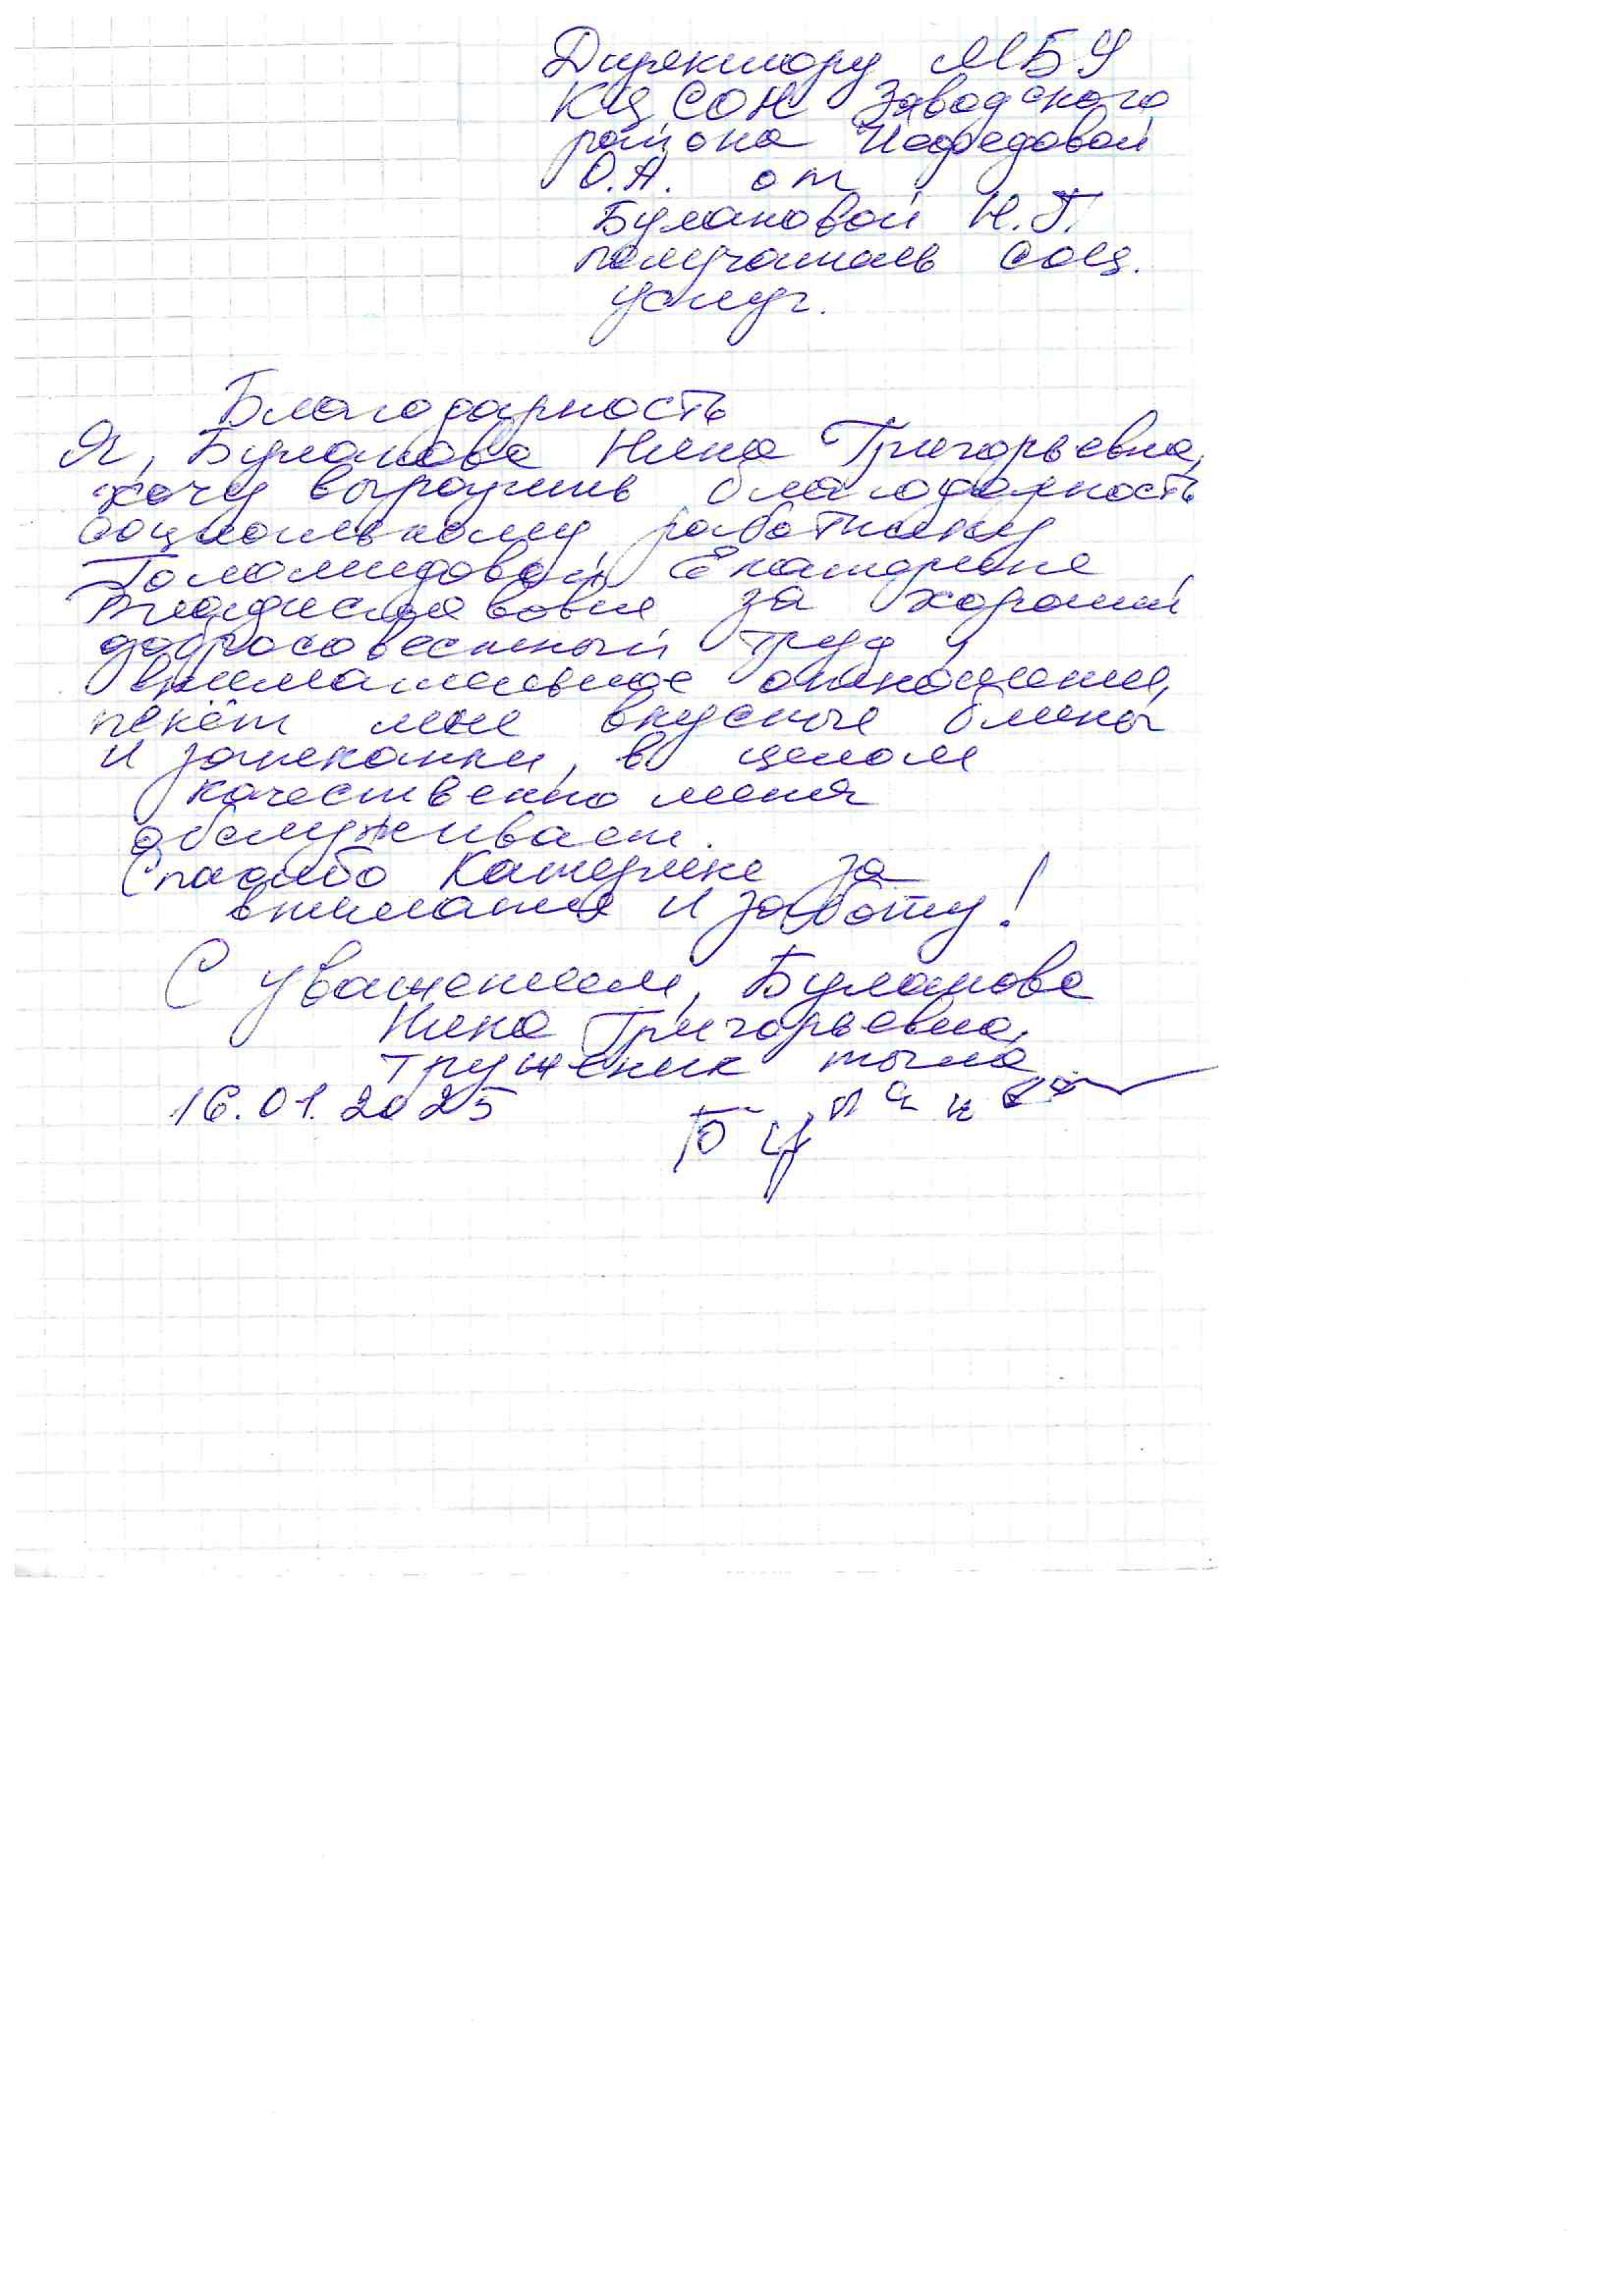 Директору МБУ
КЦСОН Заводского
района Нефедовой
О.А. от
Булановой Н.Г.
получатель соц.
услуг.
Благодарность
Я, Буланова Нина Григорьевна,
хочу выразить благодарность
социальному работнику
Екатерине
Владиславовне за хороший
добросовестный труд и
внимательное отношение,
печёт мне вкусные блины
и запеканки, в целом
качественно меня
обслуживает.
Спасибо Катерине за
внимание и заботу!
С уважением, Буланова
Нина Григорьевна,
труженик тыла
16.01.2025
Буланова